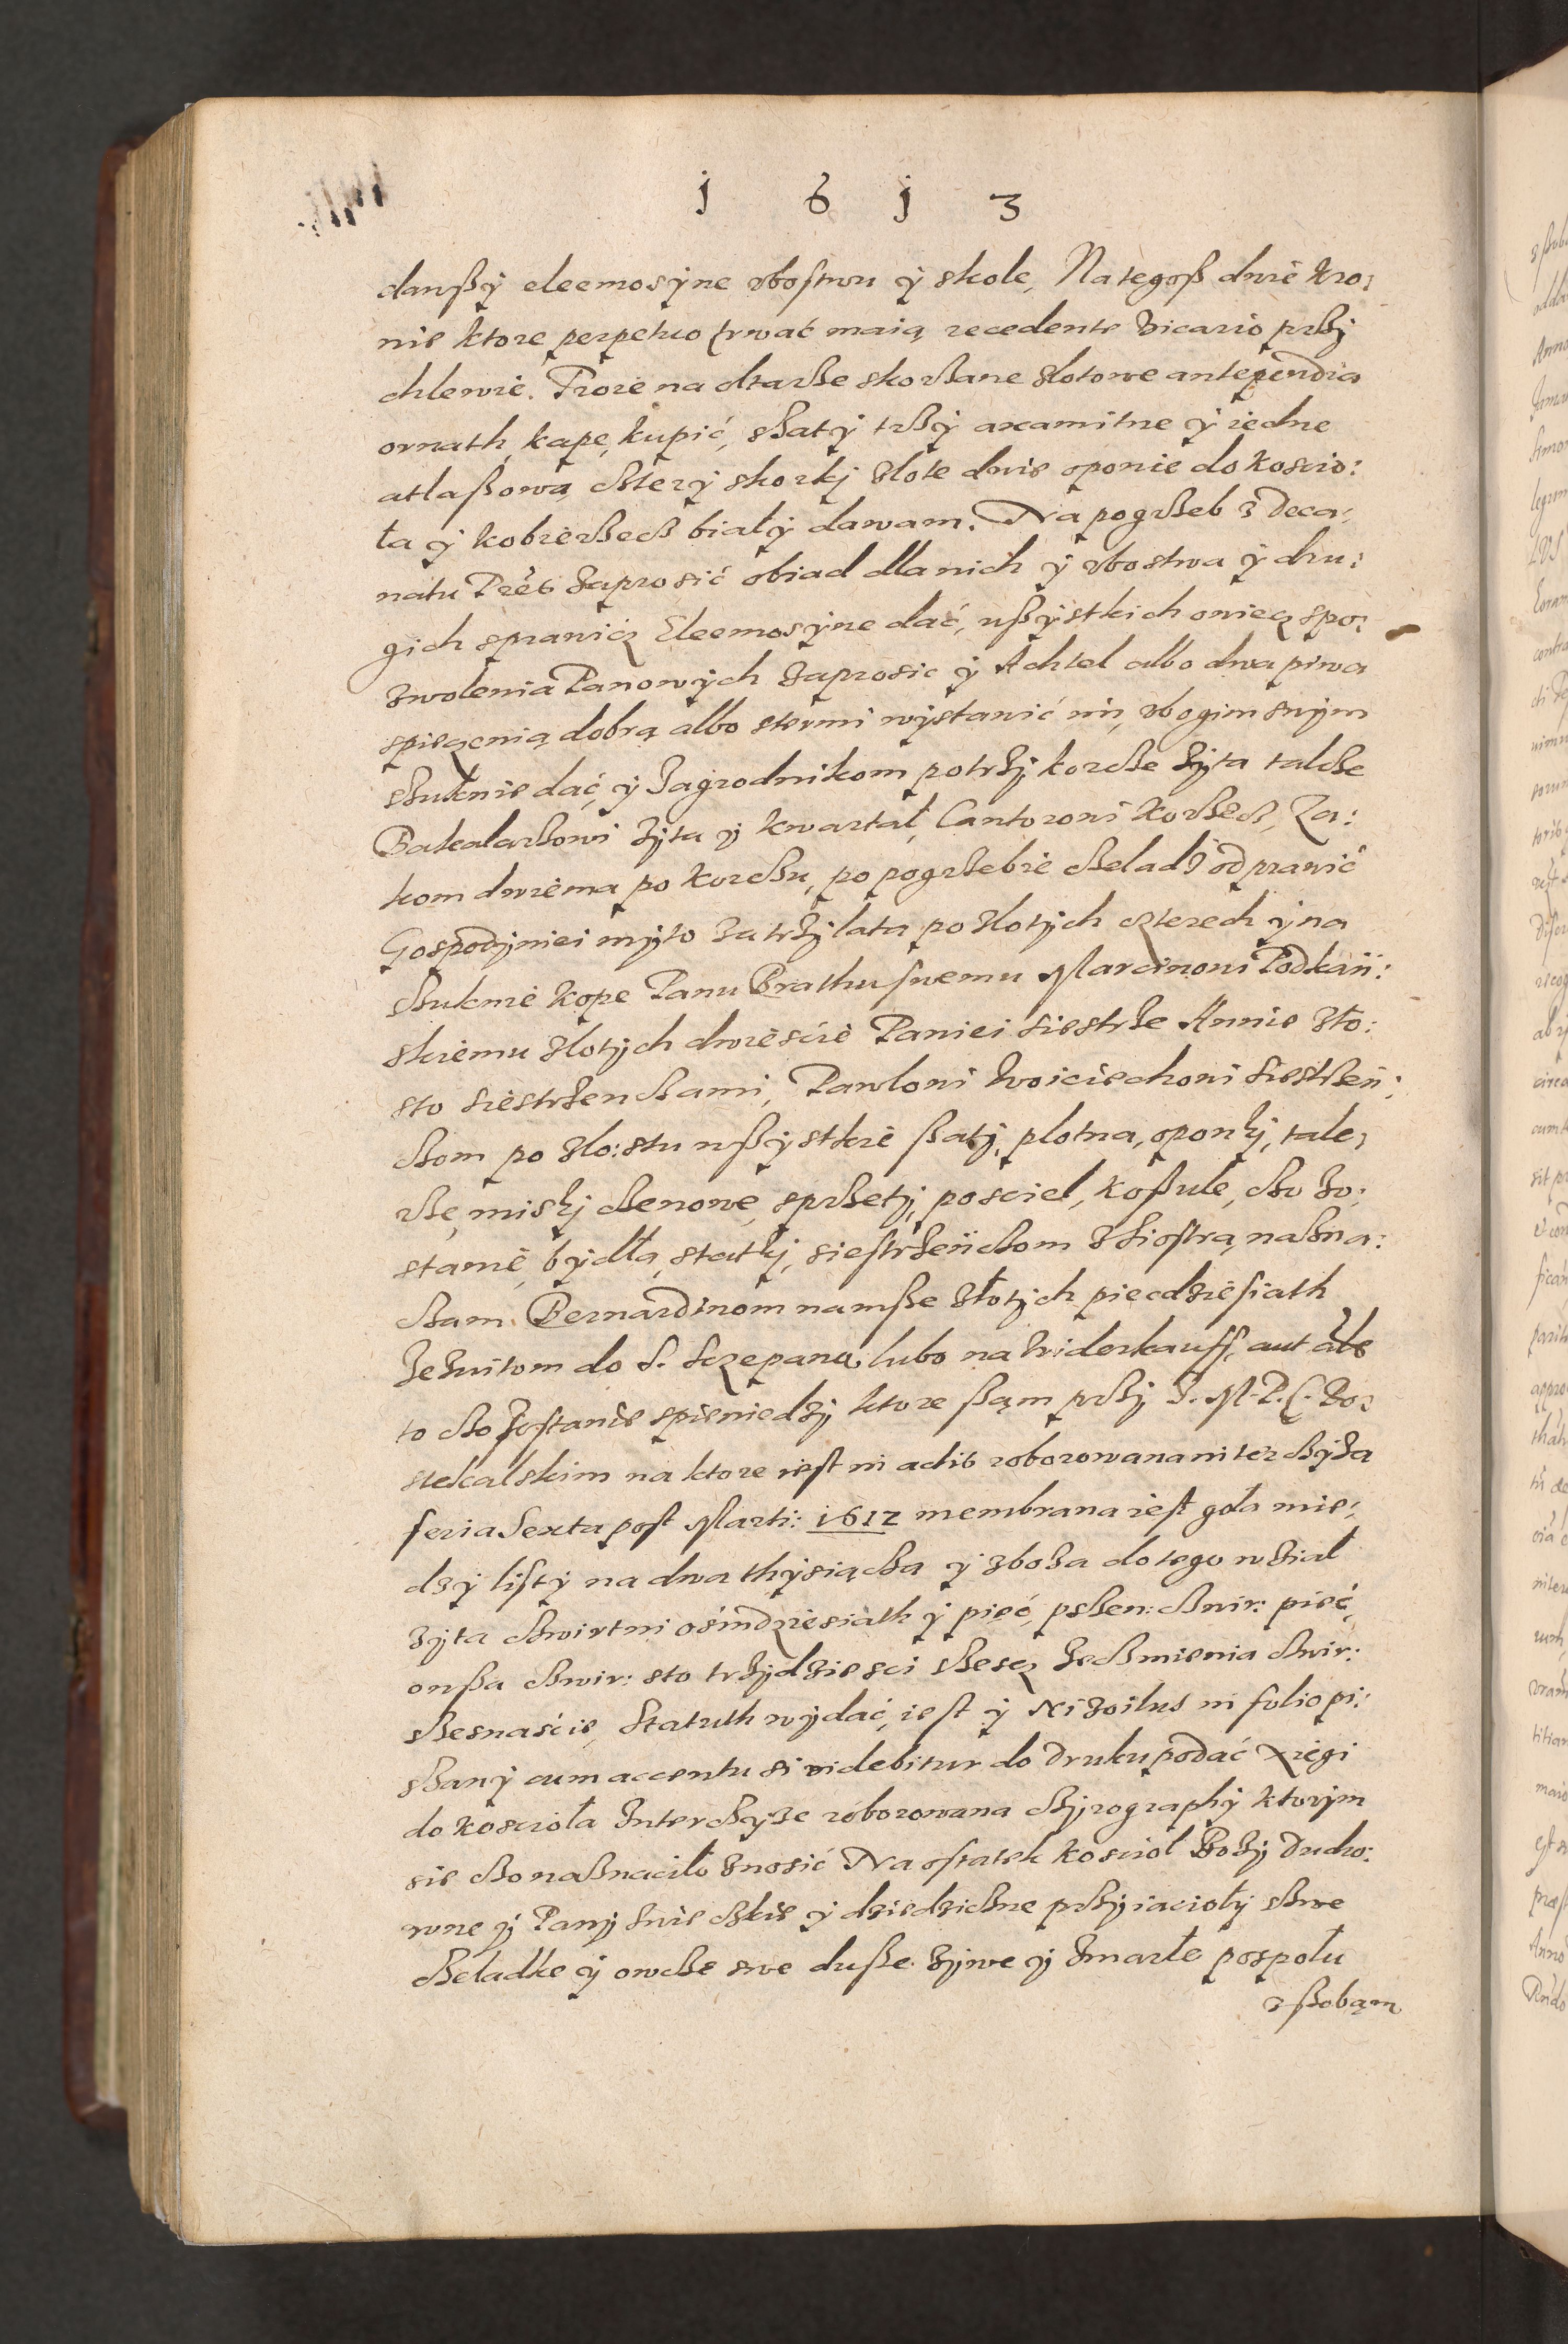 1 6 1 3
dawßÿ eleemosÿne vbostwu ÿ skole, Na tegoß dwie kro:
nie ktore perpetuo trwać maią recedente vicario przÿ
chlewie. Troie na oltarze skorzane zlotowe antependia
ornath, kapę, kupić, szatÿ trzÿ axamitne ÿ iedne
atlaßową czterÿ skorkj zlote dwie oponie do koscio:
ła ÿ kobierzecz białÿ dawam. Na pogrzeb z Deca:
natu Preb zaprosić obiad dla nich ÿ vbostwa ÿ dru:
gich sprawicz Eleemosÿne dać, wßÿstkich owiecz spo:
zwolenia Panowÿch zaprosic ÿ Achtel albo dwa piwa
spieczenią dobrą albo stermi wÿstawić im, vbogim swÿm
suknie dać, ÿ Zagrodnikom po trzÿ korcze żÿta takze
Bakalarzowi żÿta ÿ kwartał, Cantorowi korzecz, Za:
kom dwiema po korczu, po pogrzebie czeladz odprawić
Gospodÿniei mÿto za trzÿ lata po zlotÿch czterech ÿ na
suknie kope Panu Brathu swemu Marcinowi Podkań:
skiemu zlotÿch dwiescie Paniei siestrze Annie zło:
sto siestrzenczami, Pawlowi Woiciechowi siestrzeń:
czom po zlo: stu wßÿstkie ßatÿ, plotna, oponkj, tale:
rze, miskj czenowe, sprzetÿ, posciel, koßule, czo zo:
stanie, bÿdła, statkj, siestrzeńczom z siostrą naszna:
czam. Bernardinom na mße złotÿch piecdziesiath
Jezuitom do S. Sczepana lubo na widerkauff, aut
to czo zostanie spieniedzÿ ktore ßąm przÿ J. M. P. C. Ro:
stekalskim na ktore iest in actis roborowana intercÿza
feria Sexta post Marti: 1612 membrana iest goła mie:
dzÿ listÿ na dwa thÿsiącza ÿ zboza do tego wział
żÿta czwirtni ośmdziesiath ÿ pięć, pszen: czwir: pieć,
owßa czwir: sto trzÿdziesci szescz Jeczmienia czwir:
szesnaście, Statuth wÿdać, iest ÿ in folio pi:
szanÿ cum accentu si videbitur do druku podać Xięgi
do koscioła Intercÿze roborowana cÿrographÿ ktorÿm
sie czo naznaciło znosić Na ostatek kosciol Bożÿ Ducho:
wne ÿ Panÿ swieczkie ÿ dziedziczne przÿiaciołÿ swe
czeladke ÿ owcze swe dusze żÿwe ÿ zmarłe pospołu
z ßobąm